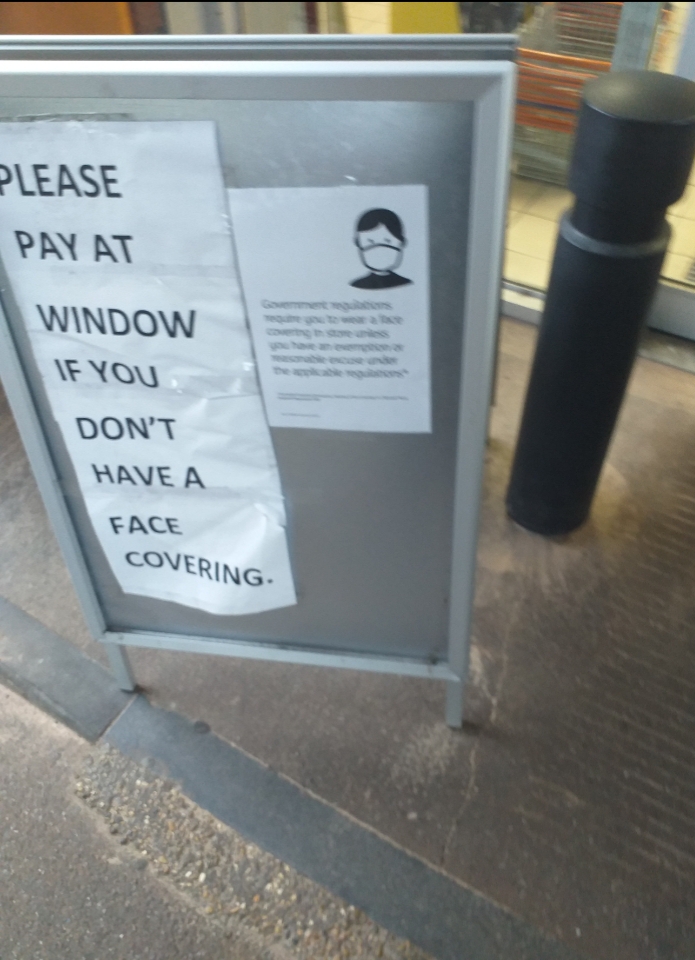 PLEASE
PAY AT
WINDOW
IF YOU
DON'T
HAVE A
FACE
COVERING.
Government regulations
require you to wear a face
covering in store unless
you have an exemption or
reasonable excuse under
the applicable regulations*